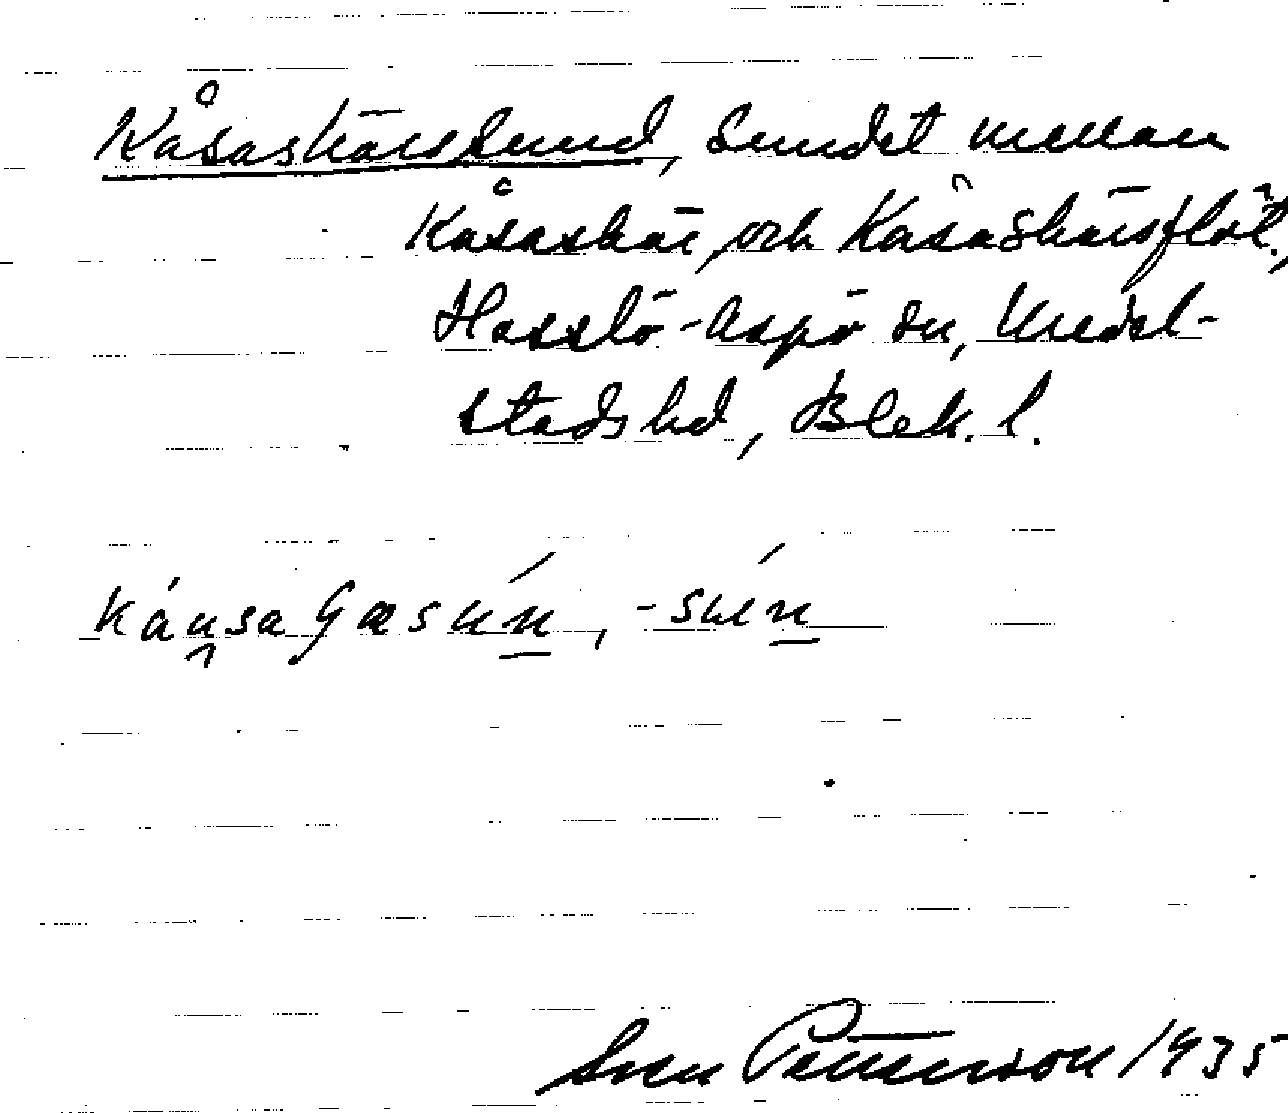 Kåsaskärssund, Sundet mellan
Kåsaskär och Kåsaskärsflöt,
Hasslö-Aspö sn, Medel-
stads hd, Blek. l.
Sven Petterson 1935